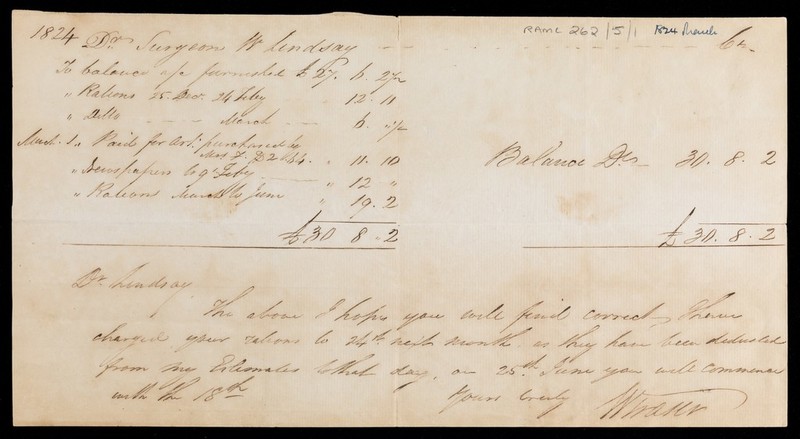 RAMC 262/5/1 1824 March
1824 Dr. Surgeon W Lindsay Cr.
To balance a/c furnished £27. 6. 2½
" Rations 25 Decr. 24 Feby 12. 11
" Ditto March 6.
March Paid for purchased by
Mrs 11. 10
" Newspapers to Feby " 12 "
" Rations March to June " 19. 2
Balance Dr. 30. 8. 2
£30 8 . 2
£30. 8. 2
Dr. Lindsay
The above I hope you will find correct, I have
charged your rations to 24th next month as they have been deducted
from my Estimates that day, on 25th June you will commence
with the 18th
Yours truly WFraser